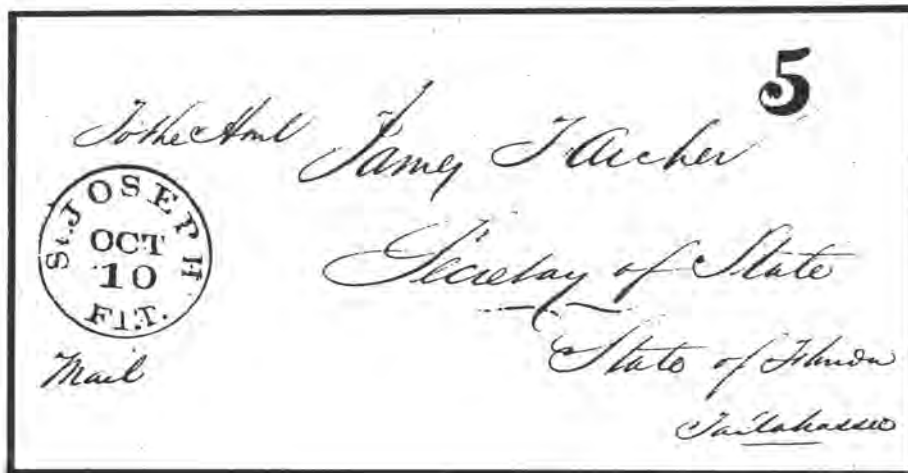 5
To the Honl James T Archer
St. JOSEPH
OCT
10
Fl.T.
Secretary of State
State of Florida
Mail
Tallahassee